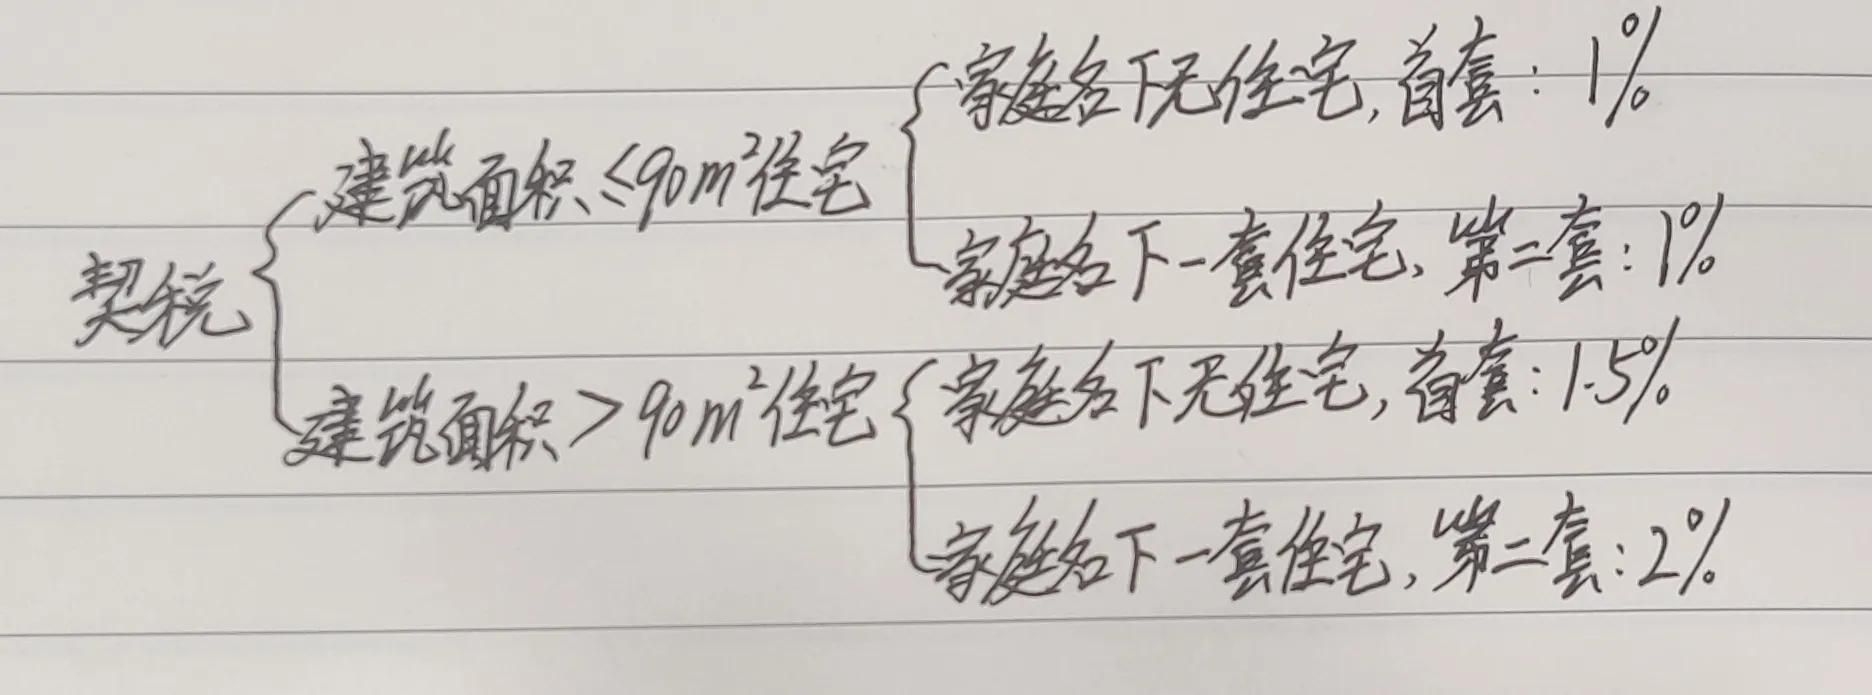 契税
建筑面积≤90m²住宅
家庭名下无住宅,首套:1%
家庭名下一套住宅,第二套:1%
建筑面积>90m²住宅
家庭名下无住宅,首套:1.5%
家庭名下一套住宅,第二套:2%